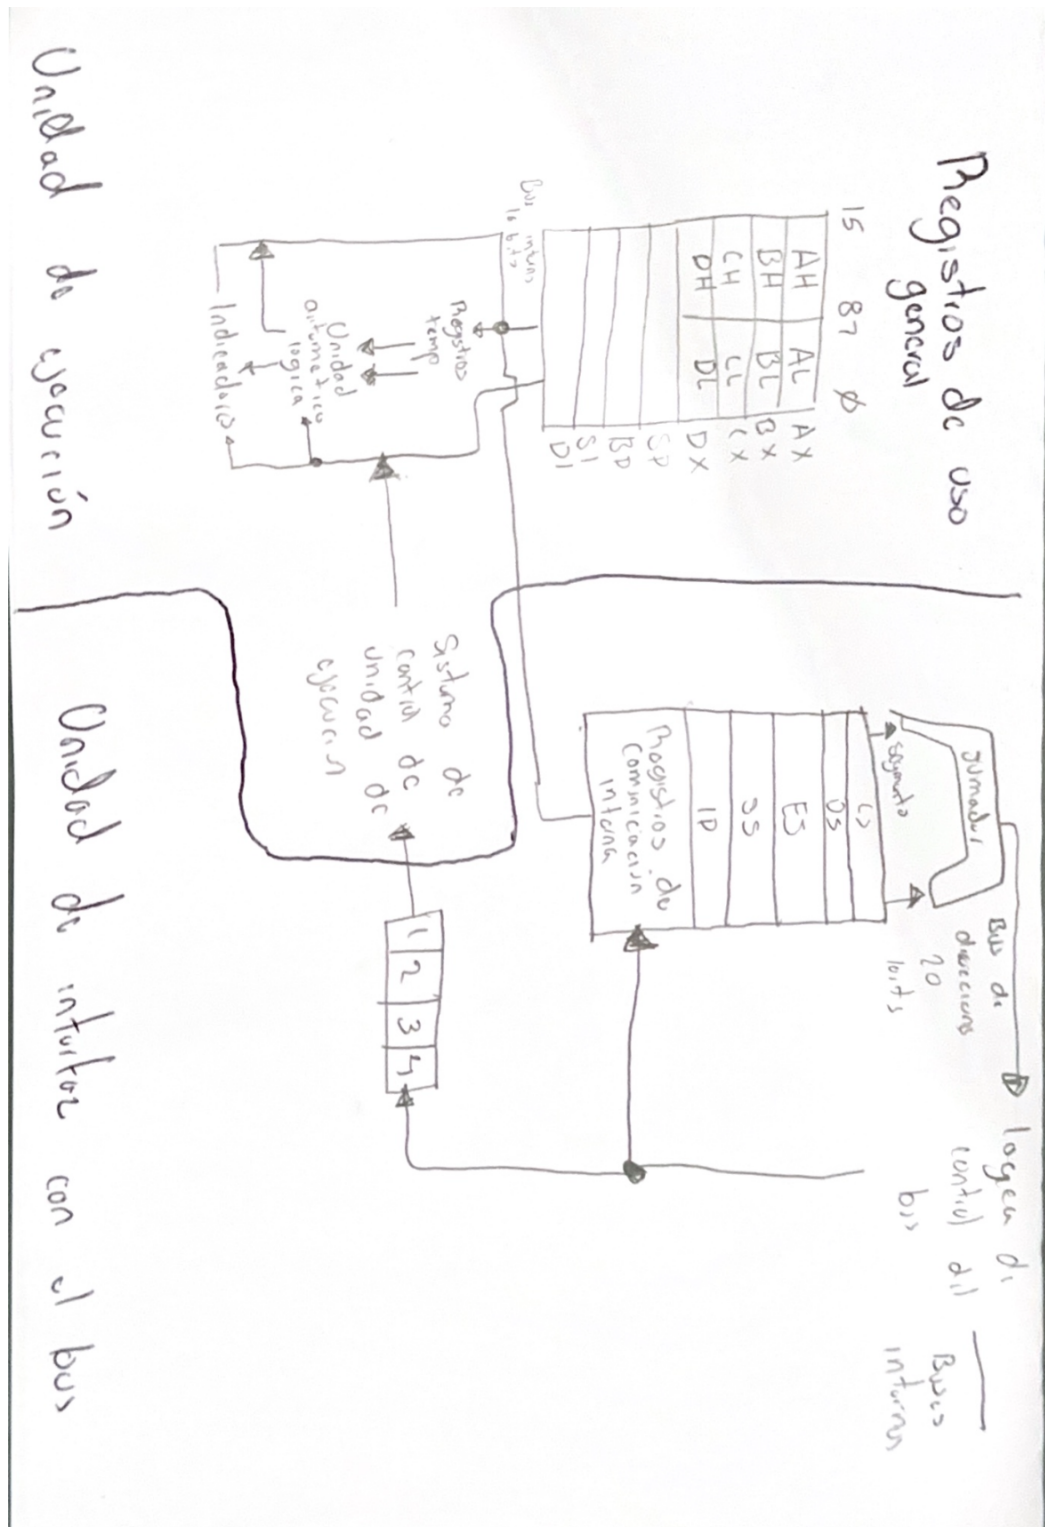 Registros de uso
general
15 87 0
AH AL AX
BH BL BX
CH CL CX
DH DL DX
SP
BP
SI
DI
Bus interno
16 bits
Registros
temp
Unidad
aritmetico
logica
Indicadores
Sistema de
control de
unidad de
ejecucin
Unidad de ejecución
sumador
segmento
CS
DS
ES
SS
IP
Registros de
comunicación
interna
Bus de
direcciones
20
bits
logca de
control del
bus
Buses
internos
1 2 3 4
Unidad de interfaz con el bus